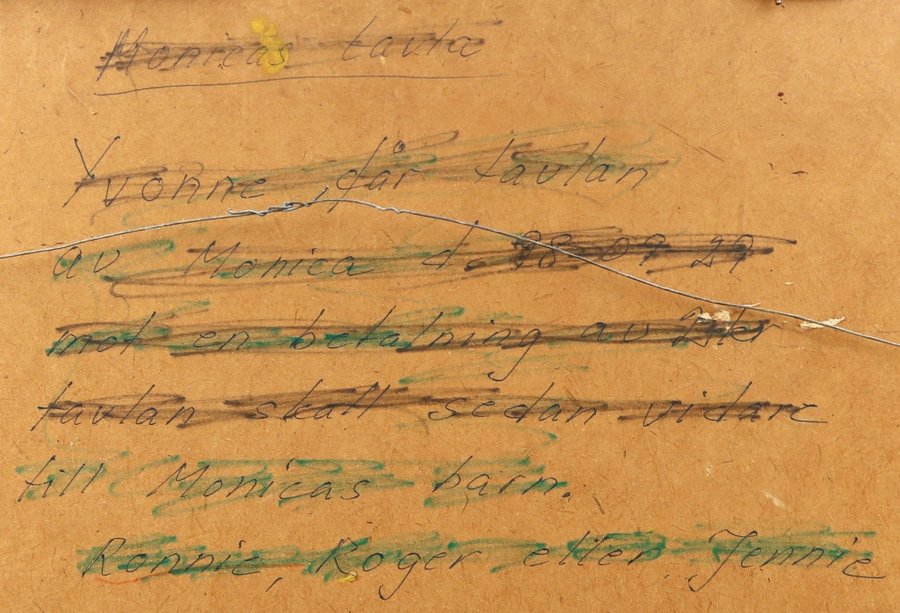 Monicas tavla
Yvonne får tavlan
av Monica d. 98 09 29
mot en betalning av kr
tavlan skall sedan vidare
till Monicas barn.
Ronnie, Roger eller Jennie